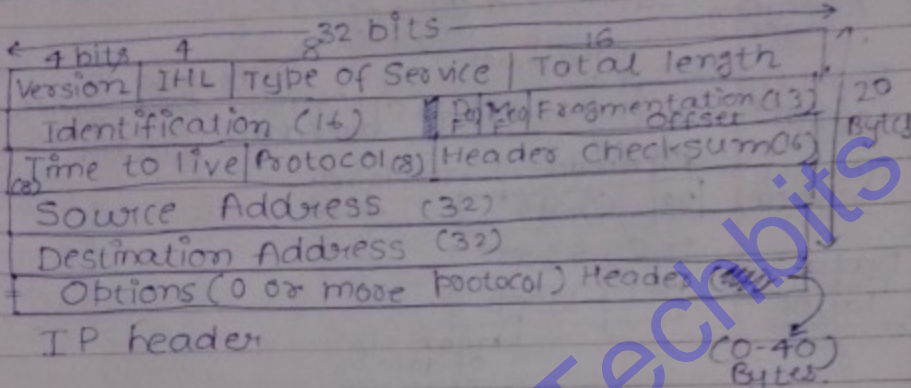 32 bits
4 bits 4 8 16
Version IHL Type of Service Total length
Identification (16) Fragmentation (13)
Offset
20
Bytes
Time to live Protocol (8) Header checksum (16)
(8)
Source Address (32)
Destination Address (32)
Options (0 or more protocol) Header
IP header
(0-40)
Bytes
Techbits